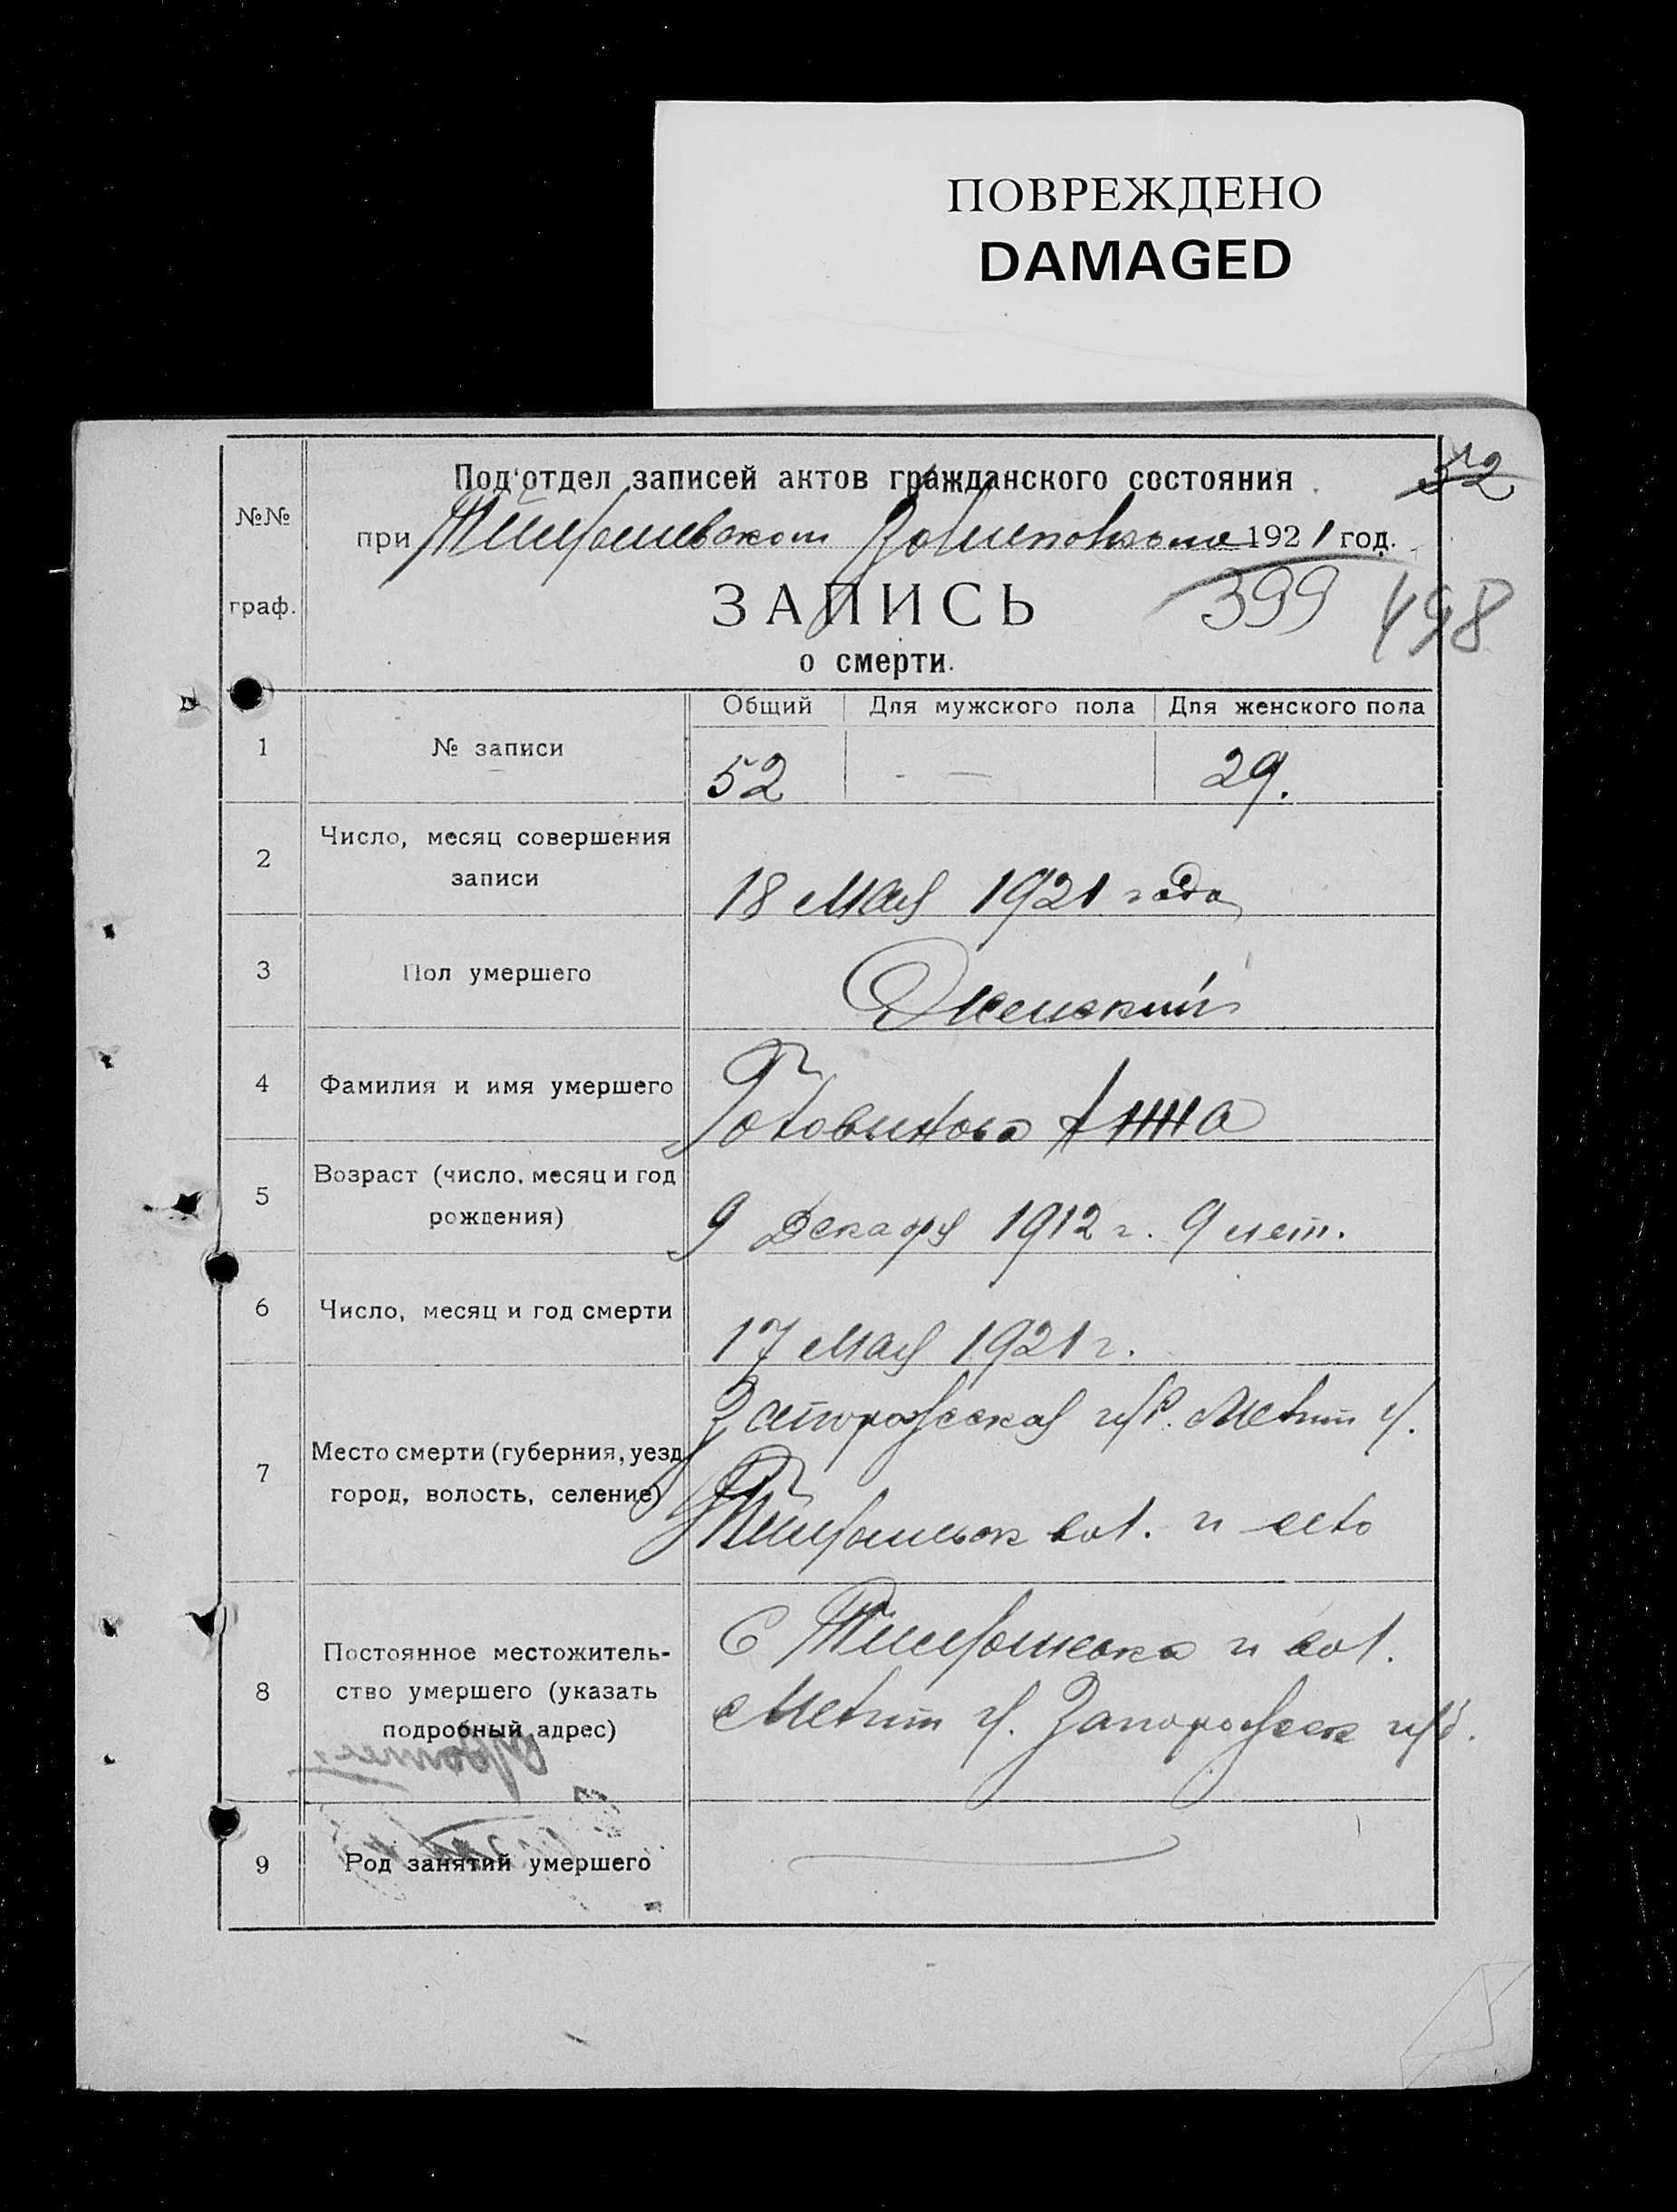 ПОВРЕЖДЕНО
DAMAGED
Под'отдел записей актов гражданского состояния
52
№№
при Тимошевском Волисполкоме 1921 год.
граф.
ЗАПИСЬ
399 498
о смерти.
Общий Для мужского пола Для женского пола
1 № записи 52 - — 29.
2 Число, месяц совершения
записи
18 мая 1921 года
3 Пол умершего Женский
4 Фамилия и имя умершего Анна
5 Возраст (число, месяц и год
рождения)
9 Декабря 1912 г. 9 лет.
6 Число, месяц и год смерти 17 мая 1921 г.
7 Место смерти (губерния, уезд
город, волость, селение)
Запорожская губ. Мелит у.
вол. и село
8 Постоянное местожитель-
ство умершего (указать
подробный адрес)
С и вол.
Мелит у. Запорожск губ.
9 Род занятий умершего